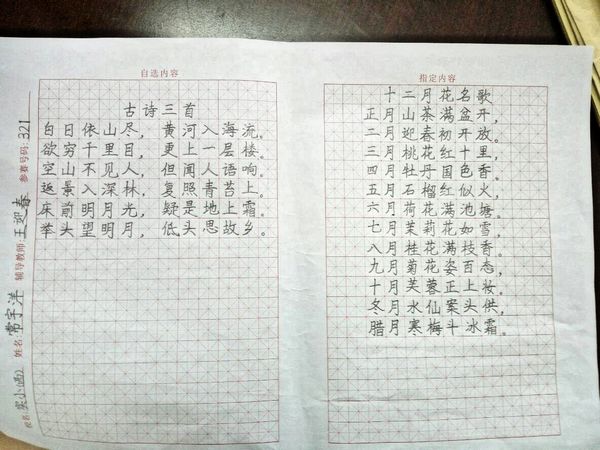 自选内容
古诗三首
白日依山尽，黄河入海流。
欲穷千里目，更上一层楼。
空山不见人，但闻人语响。
返景入深林，复照青苔上。
床前明月光，疑是地上霜。
举头望明月，低头思故乡。
参赛号码：321
辅导教师 王迎春
姓名 常宇洋
校名
指定内容
十二月花名歌
正月山茶满盆开，
二月迎春初开放。
三月桃花红十里，
四月牡丹国色香。
五月石榴红似火，
六月荷花满池塘。
七月茉莉花如雪，
八月桂花满枝香。
九月菊花姿百态，
十月芙蓉正上妆。
冬月水仙案头供，
腊月寒梅斗冰霜。